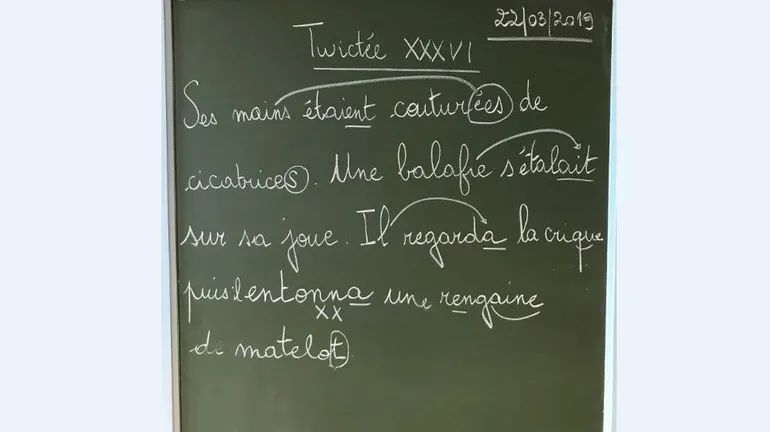 22/03/2019
Twictée XXXVI
Ses mains étaient couturées de
cicatrices. Une balafre s'étalait
sur sa joue. Il regarda la crique
puis il entonna une rengaine
XX
de matelot.